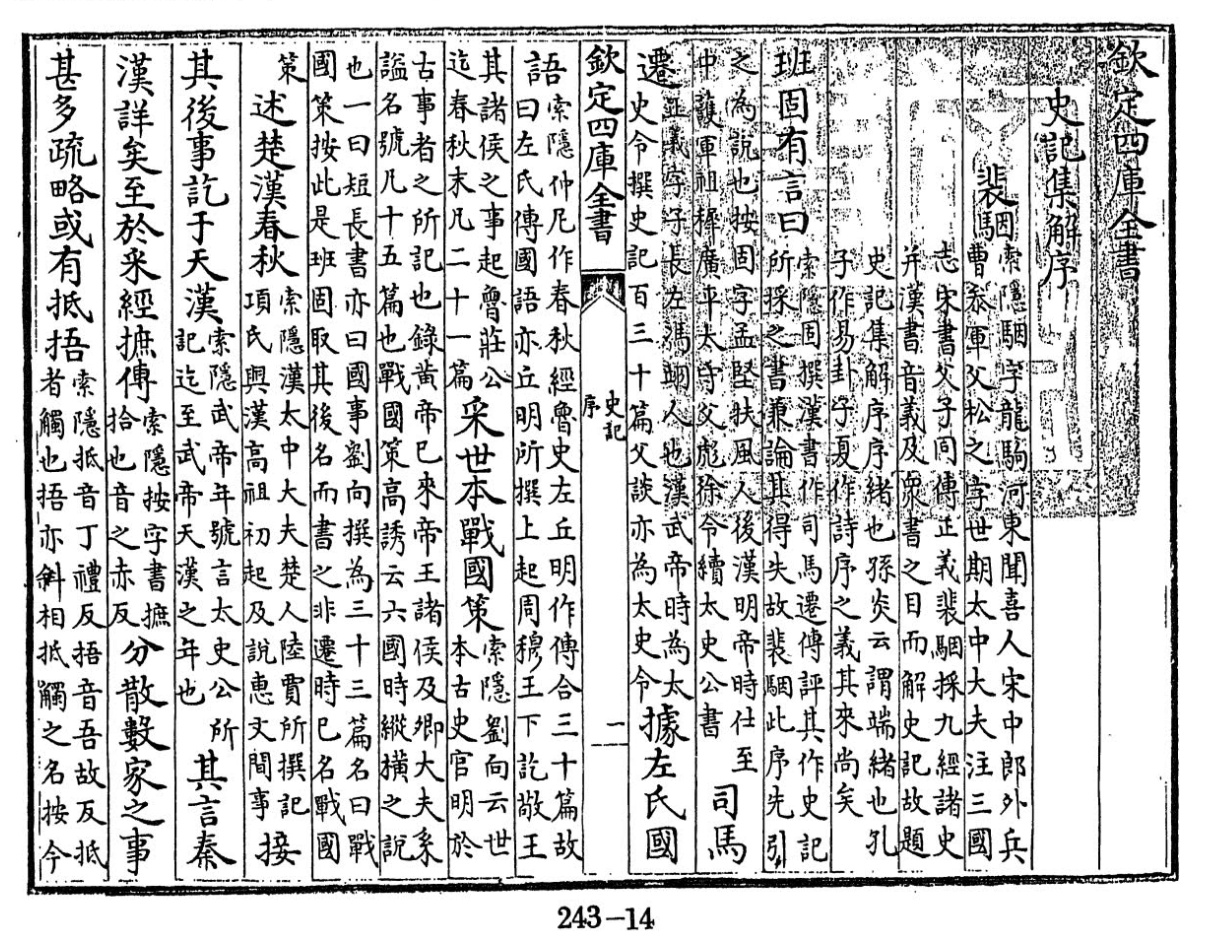 欽定四庫全書
史記集解序
裴駰
索隱駰字龍駒河東聞喜人宋中郎外兵
曹參軍父松之字世期太中大夫注三國
志宋書父子同傳正義裴駰採九經諸史
并漢書音義及衆書之目而解史記故題
史記集解序序緒也孫炎云謂端緒也孔
子作易卦子夏作詩序之義其來尚矣
班固有言曰
索隱固撰漢書作司馬遷傳評其作史記
所採之書兼論其得失故裴駰此序先引
之為說也按固字孟堅扶風人後漢明帝時仕至
中護軍祖穉廣平太守父彪徐令續太史公書
司馬
遷
正義字子長左馮翊人也漢武帝時為太
史令撰史記百三十篇父談亦為太史令
據左氏國
欽定四庫全書
史記
序
一
語
索隱仲尼作春秋經魯史左丘明作傳合三十篇故
曰左氏傳國語亦丘明所撰上起周穆王下訖敬王
其諸侯之事起魯莊公
迄春秋末凡二十一篇
采世本戰國策
索隱劉向云世
本古史官明於
古事者之所記也錄黄帝已來帝王諸侯及卿大夫系
諡名號凡十五篇也戰國策高誘云六國時縱橫之說
也一曰短長書亦曰國事劉向撰為三十三篇名曰戰
國策按此是班固取其後名而書之非遷時已名戰國
策
述楚漢春秋
索隱漢太中大夫楚人陸賈所撰記
項氏與漢高祖初起及說惠文間事
接
其後事訖于天漢
索隱武帝年號言太史公所
記迄至武帝天漢之年也
其言秦
漢詳矣至於采經摭傳
索隱按字書摭
拾也音之赤反
分散數家之事
甚多疏略或有抵捂
索隱抵音丁禮反捂音吾故反抵
者觸也捂亦斜相抵觸之名按今
243-14